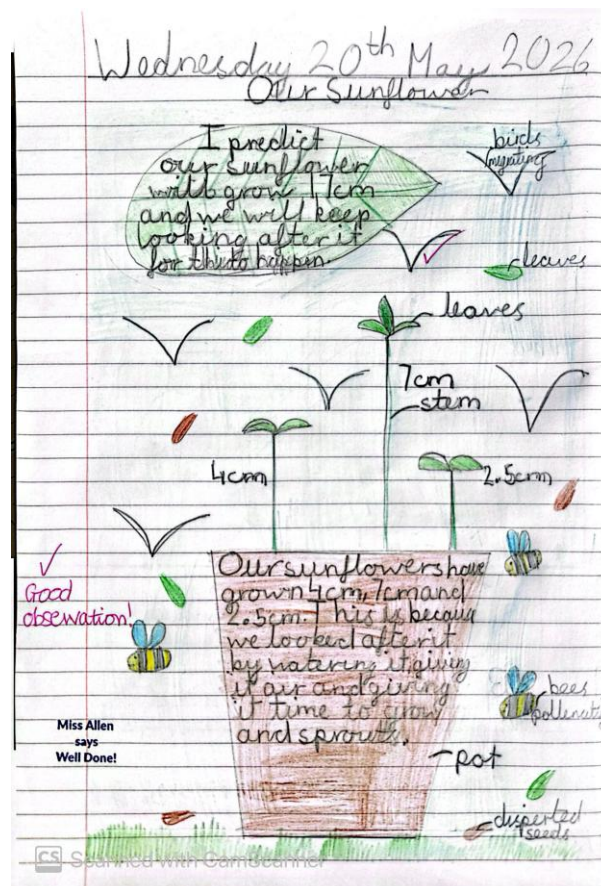 Wednesday 20th May 2026
Our Sunflower
I predict
our sunflower
will grow 17cm
and we will keep
looking after it
for this to happen.
birds
migrating
leaves
leaves
7cm
stem
4cm
2.5cm
Our sunflowers have
grown 4cm, 7cm and
2.5cm. This is because
we looked after it
by watering it, giving
it air and giving
it time to grow
and sprouts.
Good
observation!
Miss Allen
says
Well Done!
bees
pollenating
pot
disperted
seeds
CS Scanned with CamScanner